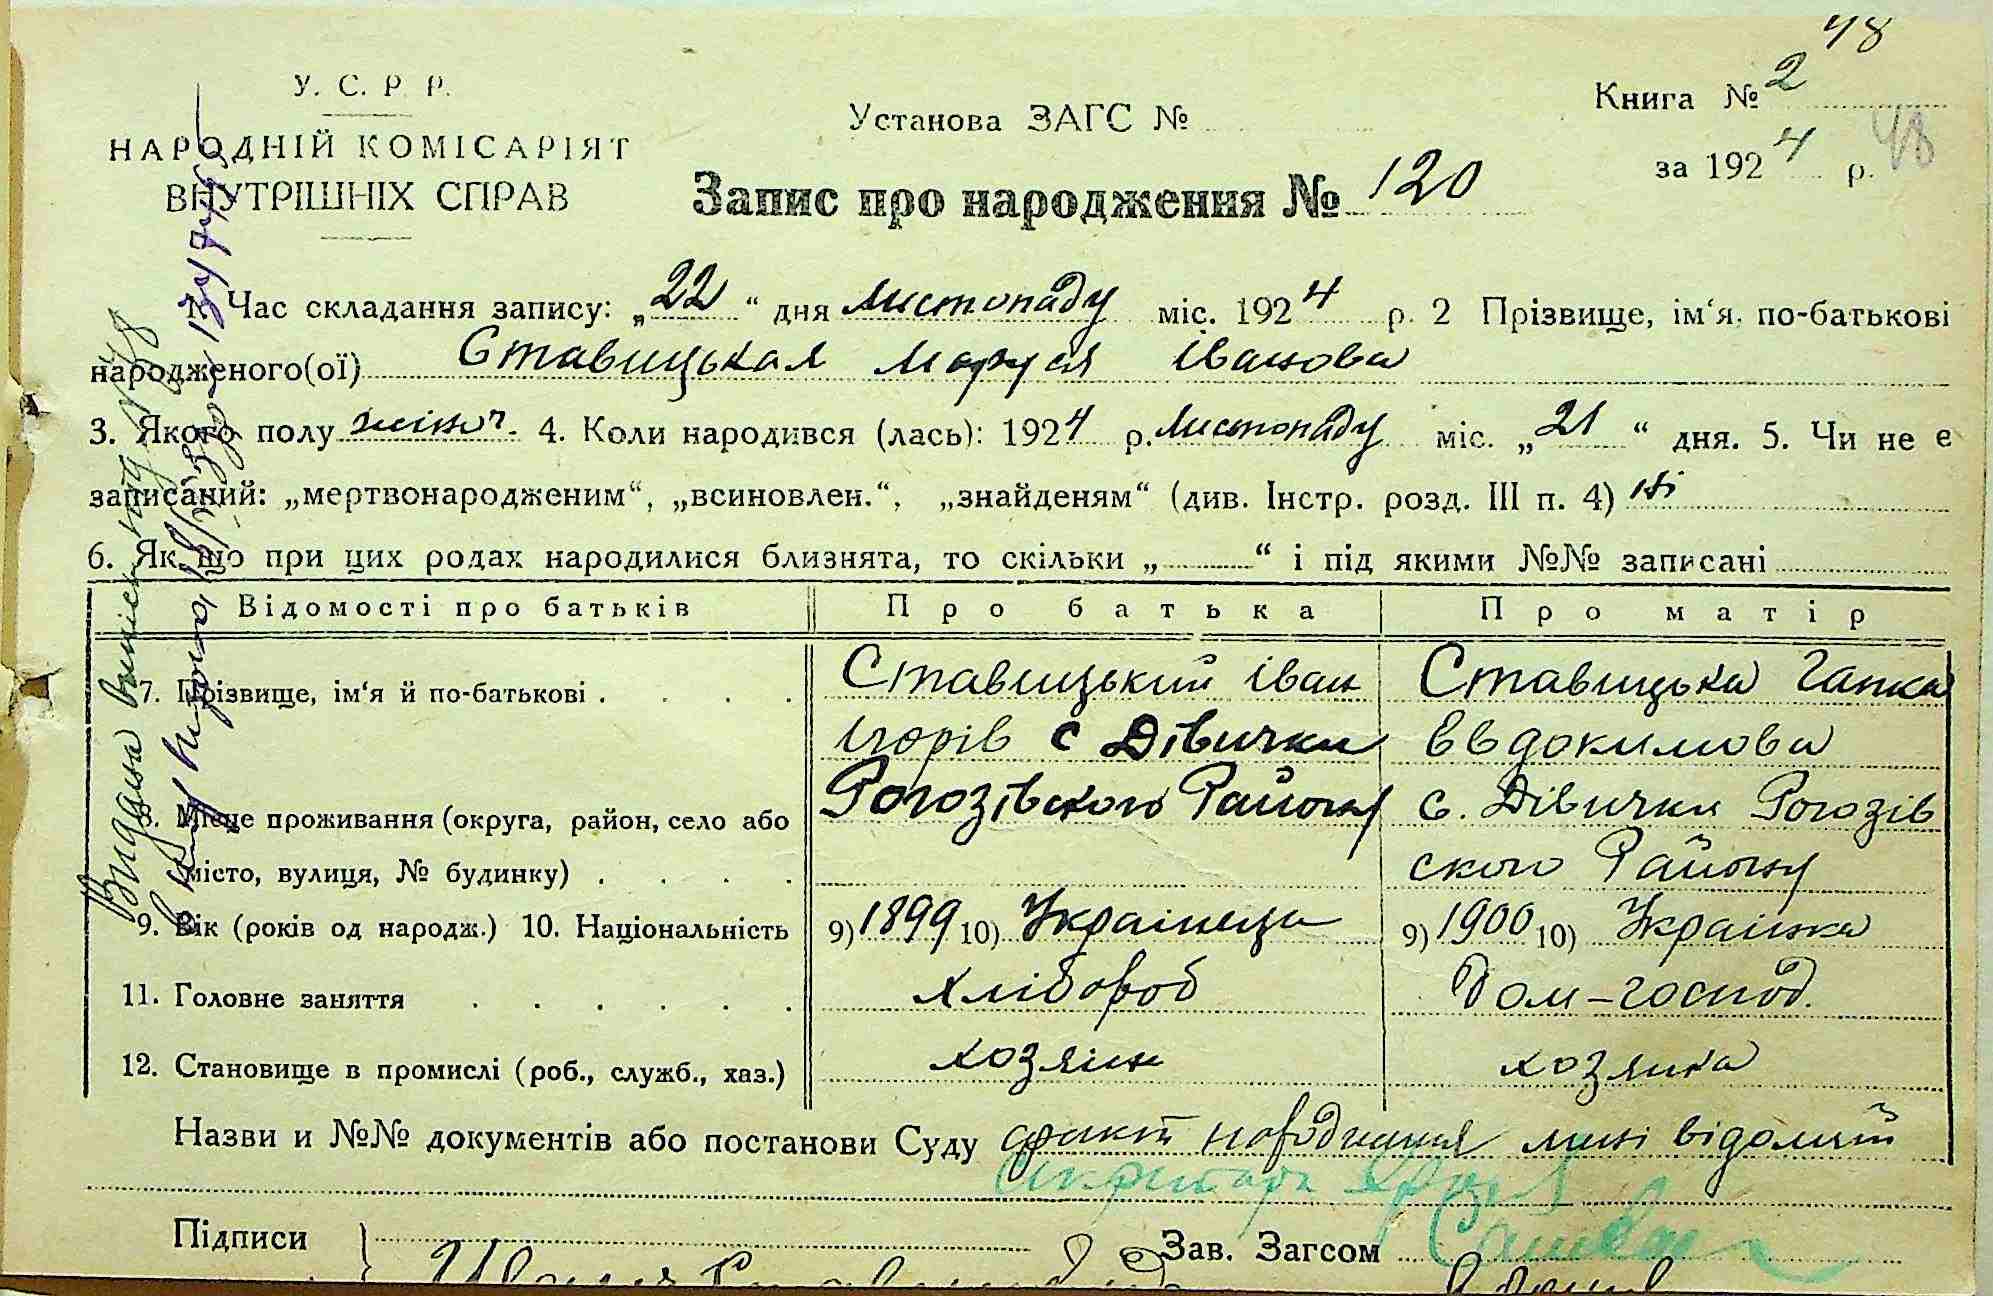 48
У. С. Р. Р.
Книга № 2
Установа ЗАГС №
НАРОДНІЙ КОМІСАРІЯТ
за 1924 р. 48
ВНУТРІШНІХ СПРАВ
Запис про народження № 120
1. Час складання запису: „22“ дня листопаду міс. 1924 р. 2 Прізвище, ім‘я, по-батькові
народженого(ої) Ставицькая Маруся Іванова
3. Якого полу жіноч. 4. Коли народився (лась): 1924 р. Листопаду міс. „21“ дня. 5. Чи не є
записаний: „мертвонародженим“, „всиновлен.“, „знайденям“ (див. Інстр. розд. III п. 4) ні
6. Як що при цих родах народилися близнята, то скільки „ “ і під якими №№ записані
Відомості про батьків Про батька Про матір
7. Прізвище, ім‘я й по-батькові . . . . Ставицький Іван Ставицька Гапка
Ігорів с Дівички Евдокимова
8. Місце проживання (округа, район, село або Рогозівского Району с. Дівички Рогозів
місто, вулиця, № будинку) . . . . ского Району
9. Вік (років од народж.) 10. Національність 9) 1899 10) Українець 9) 1900 10) Українка
11. Головне заняття . . . . . . Хлібороб Дом-господ.
12. Становище в промислі (роб., служб., хаз.) хозяін хозяйка
Назви и №№ документів або постанови Суду факт народження мині відомий
Підписи Зав. Загсом
Видана виписка